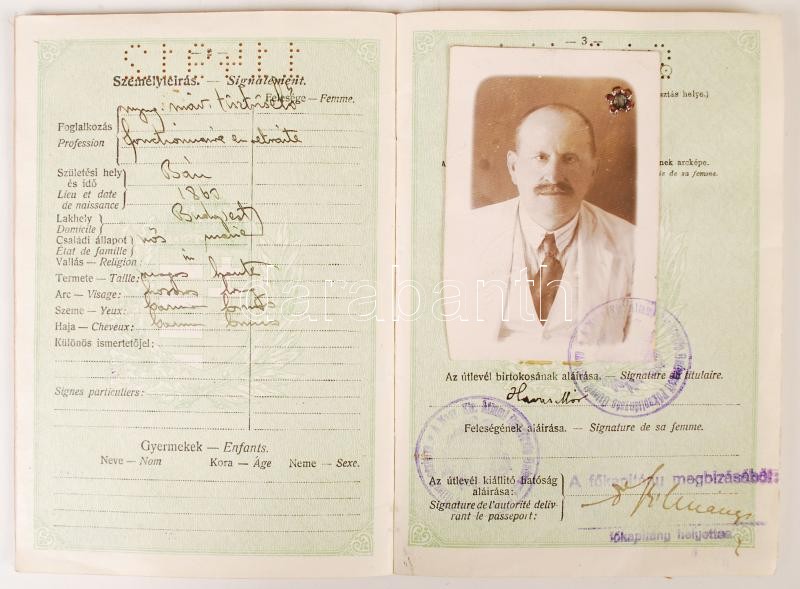 Személyleírás. — Signalement.
Felesége — Femme.
nyug. máv. főtiszt
Foglalkozás
Profession
fonctionnaire en retraite
Születési hely
és idő
Lieu et date
de naissance
Bán
1860
Lakhely
Domicile
Budapest
Családi állapot
État de famille
nős marié
Vallás — Religion:
Termete — Taille: magas haute
Arc — Visage: hosszas long
Szeme — Yeux: barna
Haja — Cheveux: barna
Különös ismertetőjel:
Signes particuliers:
Gyermekek — Enfants.
Neve — Nom Kora — Âge Neme — Sexe.
— 3 —
ztás helye.)
nek arcképe.
ie de sa femme.
darabanth
Az útlevél birtokosának aláírása. — Signature du titulaire.
Havas Mór
Feleségének aláírása. — Signature de sa femme.
Az útlevél kiállító hatóság
aláírása:
Signature de l'autorité deliv-
rant le passeport:
A főkapitány megbízásából:
főkapitány helyettes